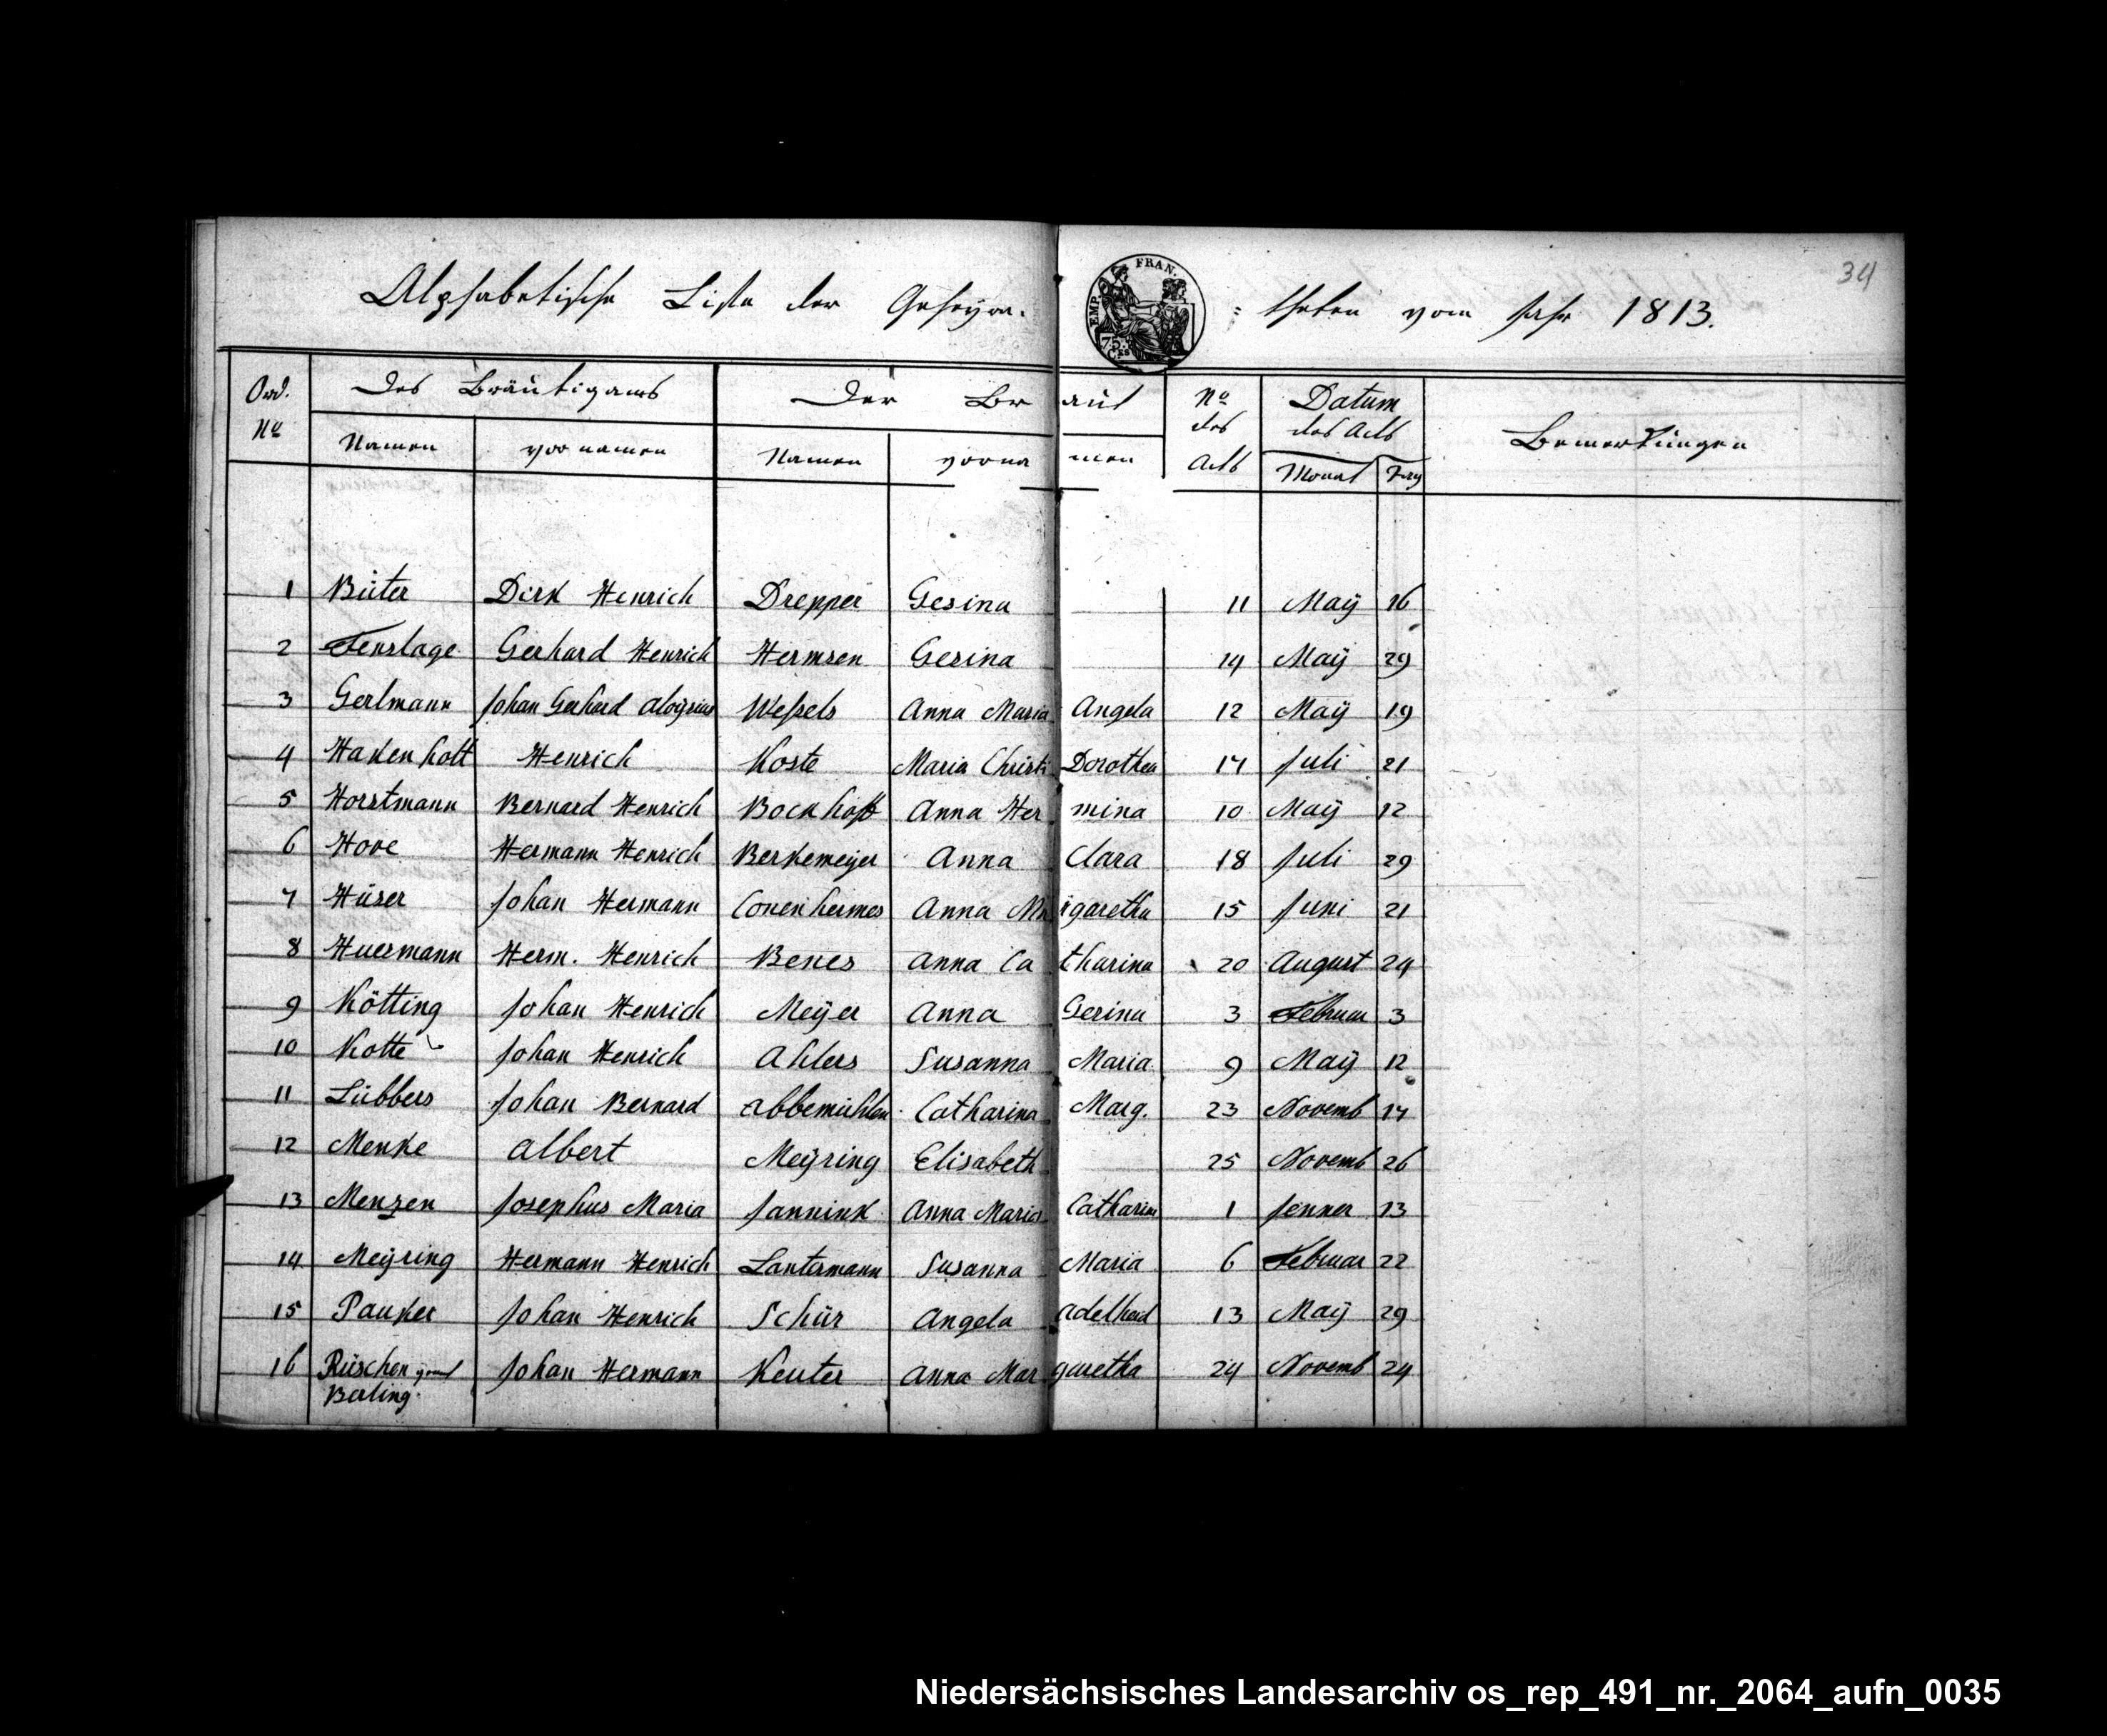 34
Alphabetische Liste der Geheyra=
EMP. FRAN.
75. C.ES
=theten vom Jahr 1813.
Ord. No
Des Bräutigams
Der Braut
No des Acts
Datum des Acts
Bemerkungen
Namen
Vornamen
Namen
Vornamen
Monat
Tag
1 Büter Dirk Henrich Drepper Gesina 11 Maÿ 16
2 Fenslage Gerhard Henrich Hermsen Gesina 14 Maÿ 29
3 Gerlmann Johan Gerhard Aloysius Wessels Anna Maria Angela 12 Maÿ 19
4 Hakenhott Henrich Koste Maria Christi Dorothea 17 Juli 21
5 Horstmann Bernard Henrich Bockhoff Anna Hermina 10 Maÿ 12
6 Hove Hermann Henrich Berkemeijer Anna Clara 18 Juli 29
7 Hüser Johan Hermann Conenhermes Anna Margaretha 15 Juni 21
8 Huermann Herm. Henrich Benes Anna Catharina 20 August 24
9 Kötting Johan Henrich Meÿer Anna Gesina 3 Februar 3
10 Kotte Johan Henrich Ahlers Susanna Maria 9 Maÿ 12
11 Lübbers Johan Bernard Abbemühlen Catharina Marg. 23 Novemb 17
12 Menke Albert Meÿring Elisabeth 25 Novemb 26
13 Menzen Josephus Maria Jannink Anna Maria Catharina 1 Jenner 13
14 Meÿring Hermann Henrich Lantermann Susanna Maria 6 Februar 22
15 Pauker Johan Henrich Schür Angela Adelheid 13 Maÿ 29
16 Rüschen gnant Johan Hermann Keuter Anna Margaretha 24 Novemb 24
Berling.
Niedersächsisches Landesarchiv os_rep_491_nr._2064_aufn_0035